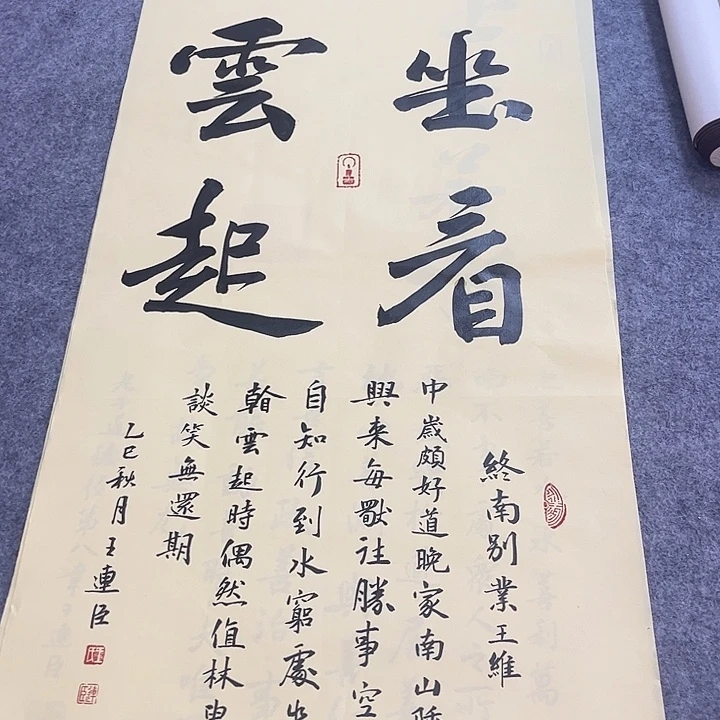 坐看
雲起
終南别業王維
中歲頗好道晚家南山陲
興来每獸往勝事空
自知行到水窮處坐
翰雲起時偶然值林叟
談笑無還期
乙巳秋月王連臣